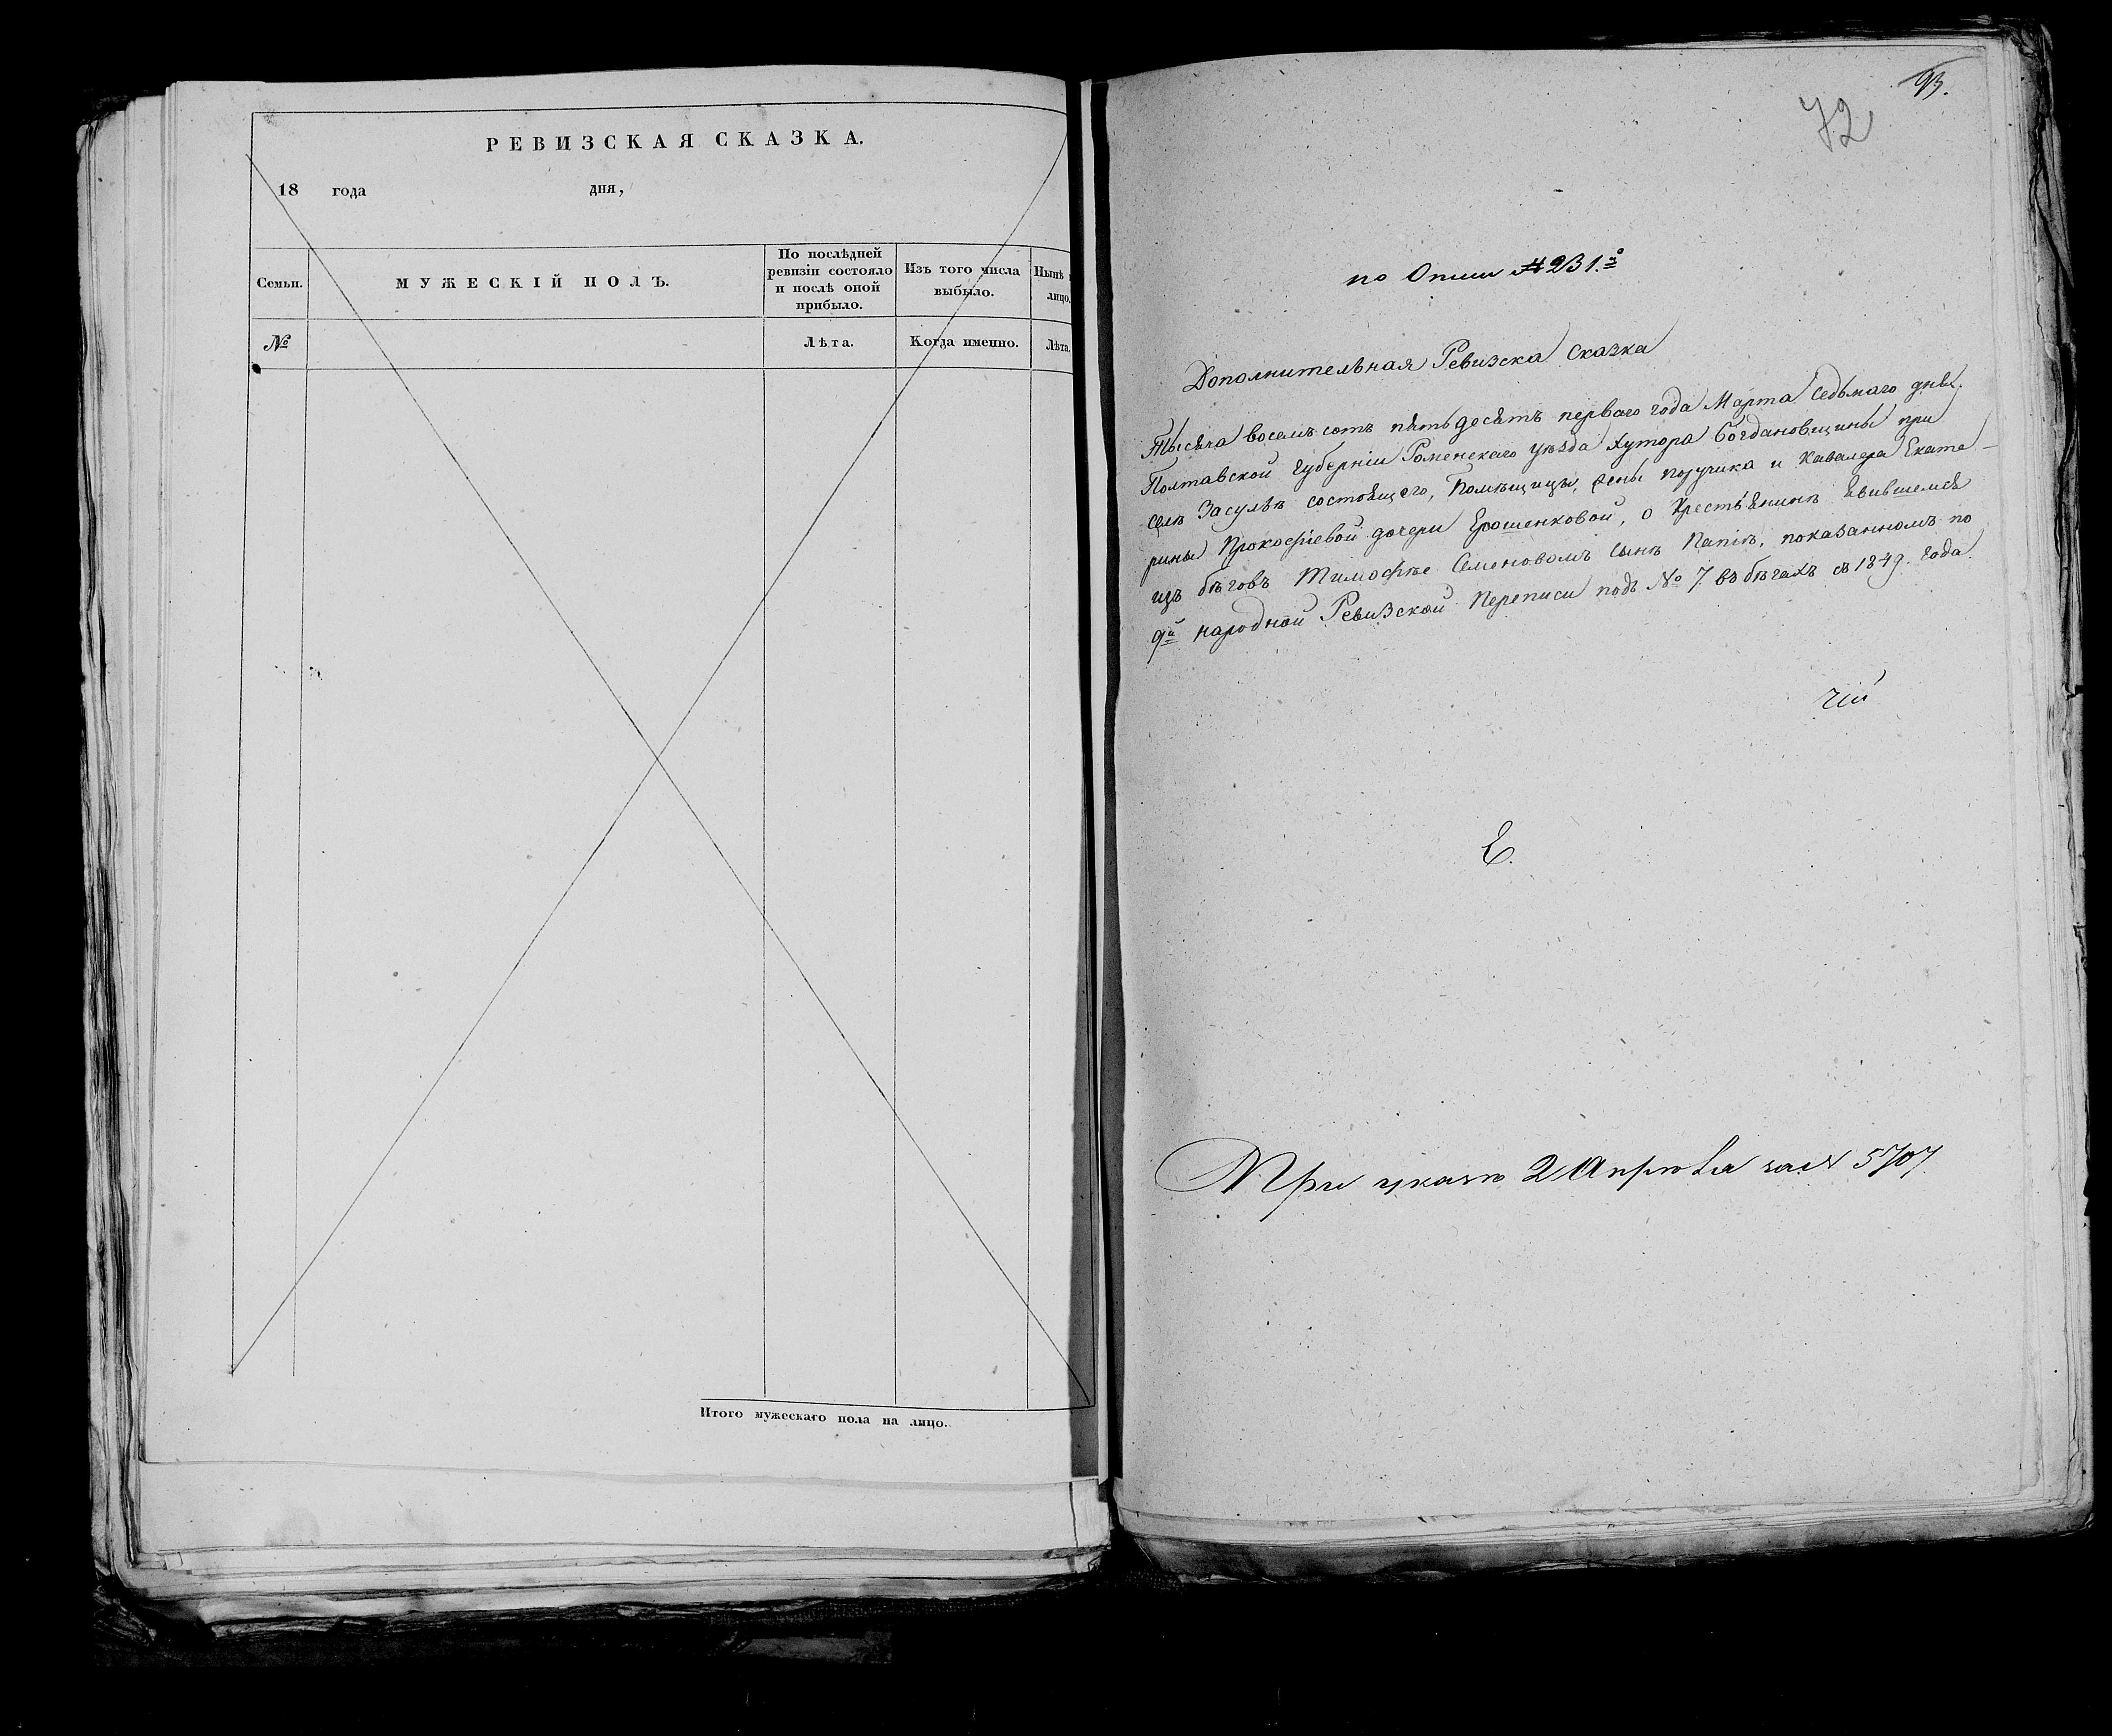 РЕВИЗСКАЯ СКАЗКА.
18 года дня,
Семьи.
МУЖЕСКІЙ ПОЛЪ.
По послѣдней
ревизіи состояло
и послѣ оной
прибыло.
Изъ того числа
выбыло.
Нынѣ
лицо.
№
Лѣта.
Когда именно.
Лѣта.
Итого мужескаго пола на лицо.
93.
72
по Описи № 231.º
Дополнительная Ревизска Сказка
Тысяча восемь сотъ пятьдесятъ перваго года Марта седьмаго дня.
Полтавской Губерніи Роменскаго уѣзда Хутора Богдановщины при
селѣ Засульѣ состоящего, Помѣщицы, жены Поручика и Кавалера Екате-
рины Прокофіевой дочери Ерошенковой, о Крестьянинѣ явившемся
изъ бѣговъ Тимофѣе Семеновомъ сынѣ Папік, показанномъ по
9й народной Ревизской Переписи подъ № 7 въ бѣгахъ съ 1849. года.
Е.
При указѣ 2 Апрѣля за № 5707